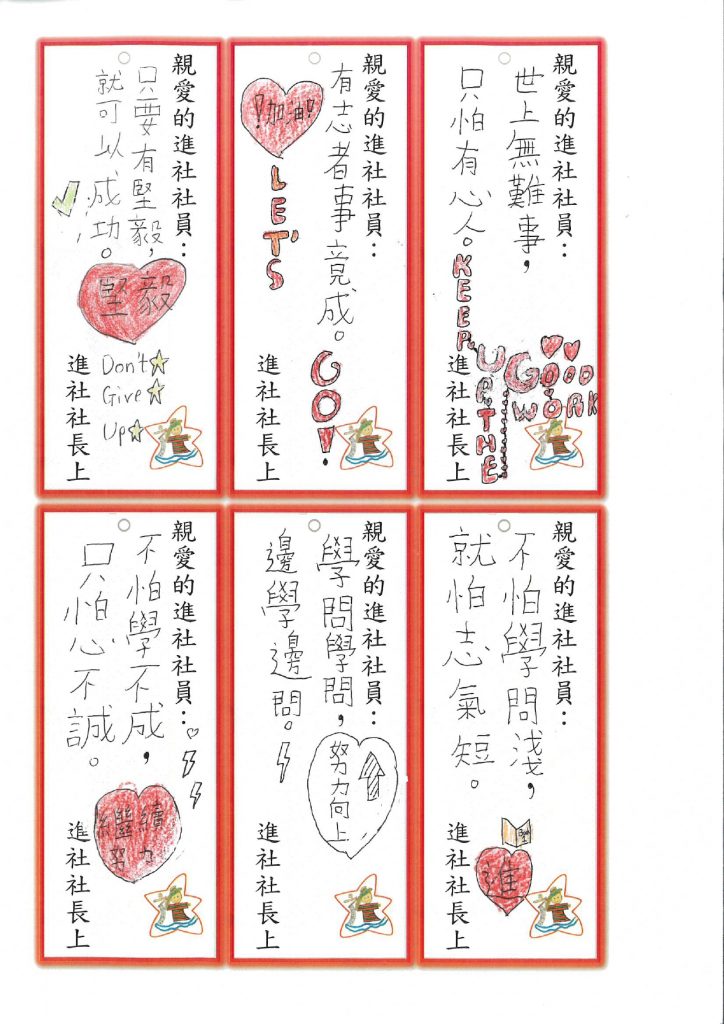 親愛的進社社員：
世上無難事，
只怕有心人。
KEEP
UP THE
GOOD
WORK
進社社長上
親愛的進社社員：
有志者事竟成。
!加油!
LET'S
GO!
進社社長上
親愛的進社社員：
只要有堅毅，
就可以成功。
堅毅
Don't
Give
Up
進社社長上
親愛的進社社員：
不怕學問淺，
就怕志氣短。
進
進社社長上
親愛的進社社員：
學問學問，
邊學邊問。
努力向上
進社社長上
親愛的進社社員：
不怕學不成，
只怕心不誠。
繼續
努力
進社社長上